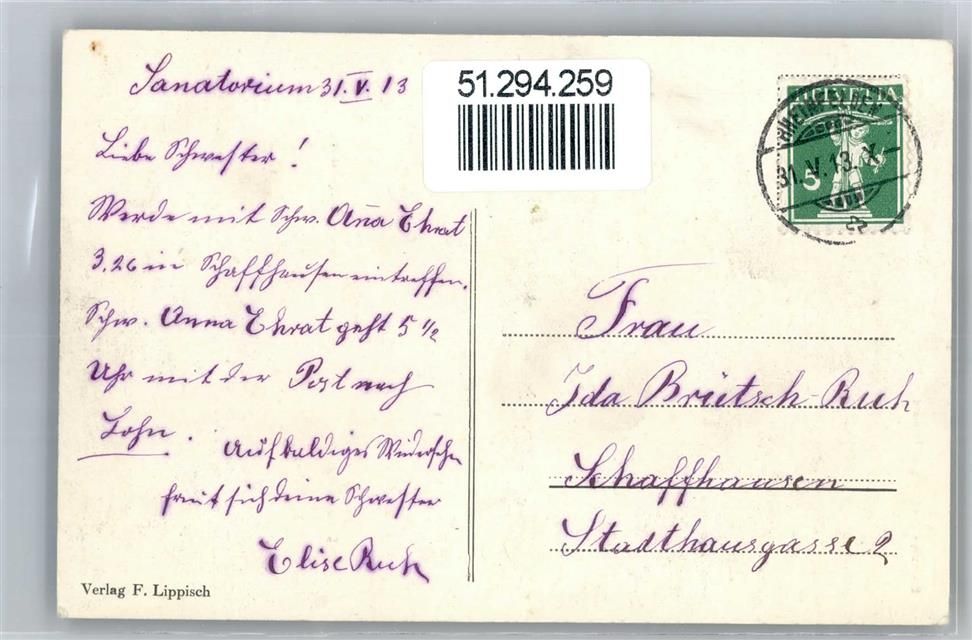 Sanatorium 31.V.13
51.294.259
Liebe Schwester!
Werde mit Schw. Anna Ehrat
3.26 in Schaffhausen eintreffen.
Schw. Anna Ehrat geht 5 1/2
Uhr mit der Post nach
Lohn.
Auf baldiges Wiedersehn
freut sich deine Schwester
Elise Ruh
Verlag F. Lippisch
HELVETIA
5
RHEINFELDEN
31.V.13.X
Frau
Ida Brütsch-Ruh
Schaffhausen
Stadthausgasse 2